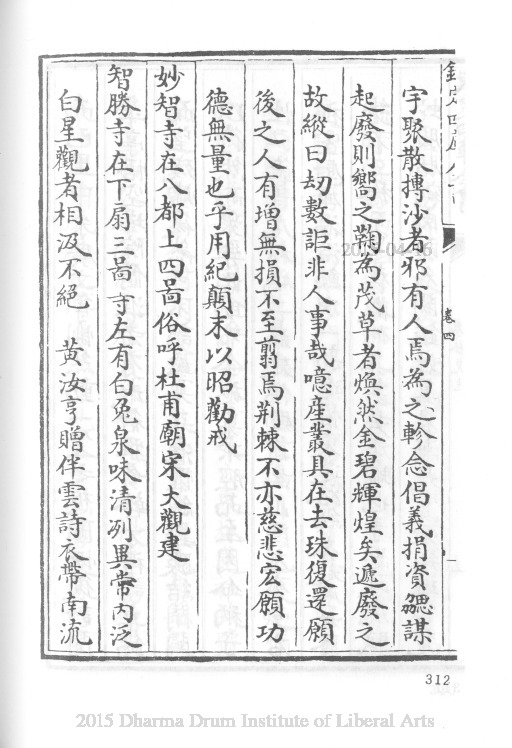 欽定四庫全書
卷四
宇聚散摶沙者邪有人焉為之軫念倡義捐資勰謀
起廢則嚮之鞠為茂草者煥然金碧輝煌矣遞廢之
故縱曰刼數詎非人事哉噫產叢具在去珠復還願
後之人有增無損不至翦焉荆棘不亦慈悲宏願功
德無量也乎用紀顛末以昭勸戒
妙智寺在八都上四啚俗呼杜甫廟宋大觀建
智勝寺在下扇三啚寺左有白兔泉味清冽異常内泛
白星觀者相汲不絕 黄汝亨贈伴雲詩衣帶南流
312
2015 Dharma Drum Institute of Liberal Arts